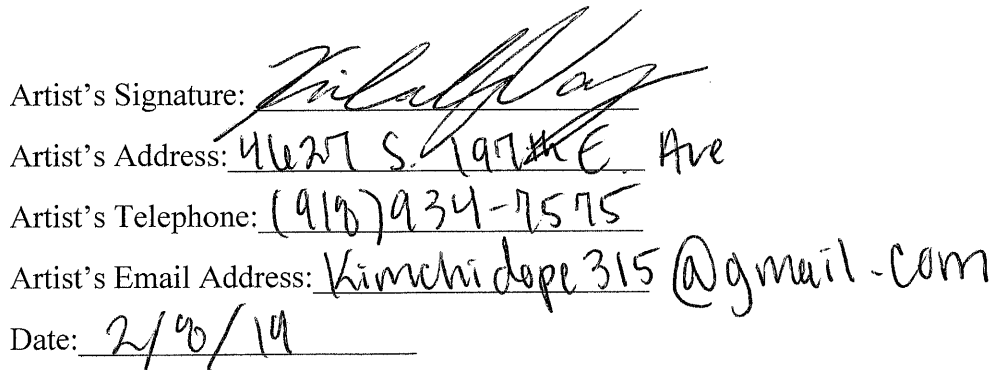 Artist's Signature:
Artist's Address: 4627 S. 197th E. Ave
Artist's Telephone: (918) 934-7575
Artist's Email Address: Kimchidope315@gmail.com
Date: 2/8/19